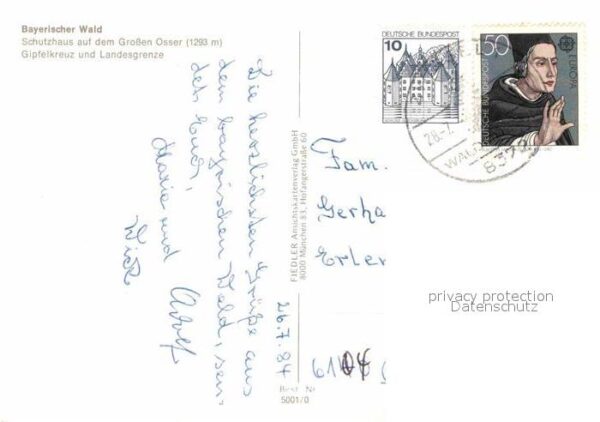 Bayerischer Wald
Schutzhaus auf dem Großen Osser (1293 m)
Gipfelkreuz und Landesgrenze
Die herzlichsten Grüße aus
dem bayrischen Wald, sen-
den Euch,
Maria und Adolf
26.7.84
FIEDLER Ansichtskartenverlag GmbH
8000 München 83, Hofangerstraße 60
Best Nr
5001/0
10
DEUTSCHE BUNDESPOST
50
DEUTSCHE BUNDESPOST
EUROPA
28.-7.
WALD
837
Fam.
Gerha
Erler
privacy protection
Datenschutz